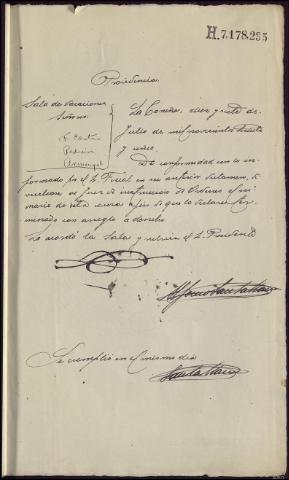 H.7.178.295
Providencia
Sala de Vacaciones
Señores
La Coruña, diez y siete de
Julio de mil novecientos treinta
y uno.
De conformidad con lo in-
formado por el S. Fiscal en su anterior dictamen, de-
vuélvase al Juez de instrucción de Ordenes el su-
mario de esta causa a fin de que lo declare ter-
minado con arreglo a derecho.
Lo acordó la Sala y rubrica el S. Presidente
Se cumplió en el mismo día